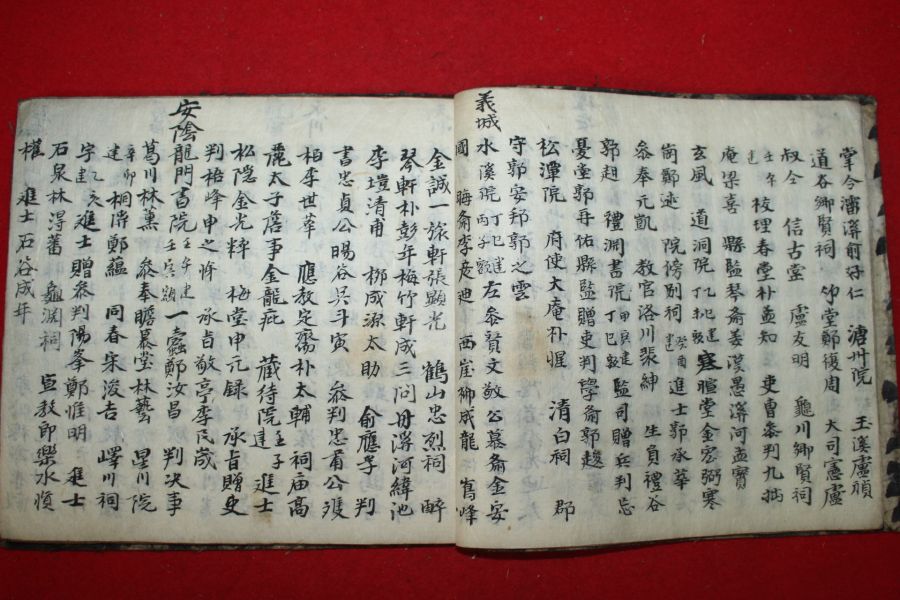 掌令潘溪俞好仁 溏州院 玉溪盧禛
道谷鄕賢祠 竹堂鄭復周 大司憲盧
叔仝 信古堂 盧友明 龜川鄕賢祠
建壬午 校理春堂朴孟知 吏曹參判九拙
庵梁喜 縣監琴齋姜漢 愚溪河孟寶
玄風 道洞院丁亥建 寒暄堂金宏弼 寒
岡鄭逑 院傍別祠建癸酉 進士郭承華
參奉元凱 敎官洛川裵紳 生員禮谷
郭𧺝 禮淵書院甲寅建丁巳額 監司贈兵判忘
憂堂郭再佑 縣監贈吏判學齋郭䞭
松潭院 府使大庵朴惺 淸白祠 郡
守郭安邦 郭之雲
義城 水溪院 丙子額 左參贊文敬公慕齋金安
國 晦齋李彦迪 西崖柳成龍 鶴峰
金誠一 旅軒張顯光 鶴山忠烈祠 醉
琴軒朴彭年 梅竹軒成三問 丹溪河緯池
李塏淸甫 柳成源太助 俞應孚 判
書忠貞公暘谷吳斗寅 參判忠肅公
柏李世華 應敎定齋朴太輔 祠庙高
麗太子詹事金龍庇 藏待院建壬子 進士
松隱金光粹 梅堂申元録 承旨贈吏
判梧峰申之悌 承旨敬亭李民宬
安陰龍門書院 一蠹鄭汝昌 判决事
葛川林薫 參奉瞻慕堂林藝 星川院
建 桐溪鄭蘊 同春宋浚吉 嶧川祠
進士贈參判陽峯鄭惟明 進士
石泉林得蕃 龜淵祠 宣敎郞樂水愼
權 進士石谷成年